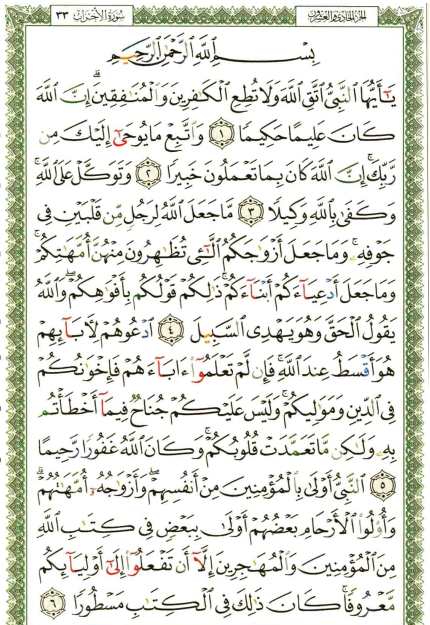 الجزء الحادي والعشرون
سورة الأحزاب ٣٣
بِسْمِ ٱللَّهِ ٱلرَّحْمَٰنِ ٱلرَّحِيمِ
يَٰٓأَيُّهَا ٱلنَّبِىُّ ٱتَّقِ ٱللَّهَ وَلَا تُطِعِ ٱلْكَٰفِرِينَ وَٱلْمُنَٰفِقِينَ ۗ إِنَّ ٱللَّهَ
كَانَ عَلِيمًا حَكِيمًا ١ وَٱتَّبِعْ مَا يُوحَىٰٓ إِلَيْكَ مِن
رَّبِّكَ ۚ إِنَّ ٱللَّهَ كَانَ بِمَا تَعْمَلُونَ خَبِيرًا ٢ وَتَوَكَّلْ عَلَى ٱللَّهِ ۚ
وَكَفَىٰ بِٱللَّهِ وَكِيلًا ٣ مَّا جَعَلَ ٱللَّهُ لِرَجُلٍ مِّن قَلْبَيْنِ فِى
جَوْفِهِۦ ۚ وَمَا جَعَلَ أَزْوَٰجَكُمُ ٱلَّٰٓـِٔى تُظَٰهِرُونَ مِنْهُنَّ أُمَّهَٰتِكُمْ ۚ
وَمَا جَعَلَ أَدْعِيَآءَكُمْ أَبْنَآءَكُمْ ۚ ذَٰلِكُمْ قَوْلُكُم بِأَفْوَٰهِكُمْ ۖ وَٱللَّهُ
يَقُولُ ٱلْحَقَّ وَهُوَ يَهْدِى ٱلسَّبِيلَ ٤ ٱدْعُوهُمْ لِءَابَآئِهِمْ
هُوَ أَقْسَطُ عِندَ ٱللَّهِ ۚ فَإِن لَّمْ تَعْلَمُوٓا۟ ءَابَآءَهُمْ فَإِخْوَٰنُكُمْ
فِى ٱلدِّينِ وَمَوَٰلِيكُمْ ۚ وَلَيْسَ عَلَيْكُمْ جُنَاحٌ فِيمَآ أَخْطَأْتُم
بِهِۦ وَلَٰكِن مَّا تَعَمَّدَتْ قُلُوبُكُمْ ۚ وَكَانَ ٱللَّهُ غَفُورًا رَّحِيمًا
٥ ٱلنَّبِىُّ أَوْلَىٰ بِٱلْمُؤْمِنِينَ مِنْ أَنفُسِهِمْ ۖ وَأَزْوَٰجُهُۥٓ أُمَّهَٰتُهُمْ ۗ
وَأُو۟لُوا۟ ٱلْأَرْحَامِ بَعْضُهُمْ أَوْلَىٰ بِبَعْضٍ فِى كِتَٰبِ ٱللَّهِ
مِنَ ٱلْمُؤْمِنِينَ وَٱلْمُهَٰجِرِينَ إِلَّآ أَن تَفْعَلُوٓا۟ إِلَىٰٓ أَوْلِيَآئِكُم
مَّعْرُوفًا ۚ كَانَ ذَٰلِكَ فِى ٱلْكِتَٰبِ مَسْطُورًا ٦